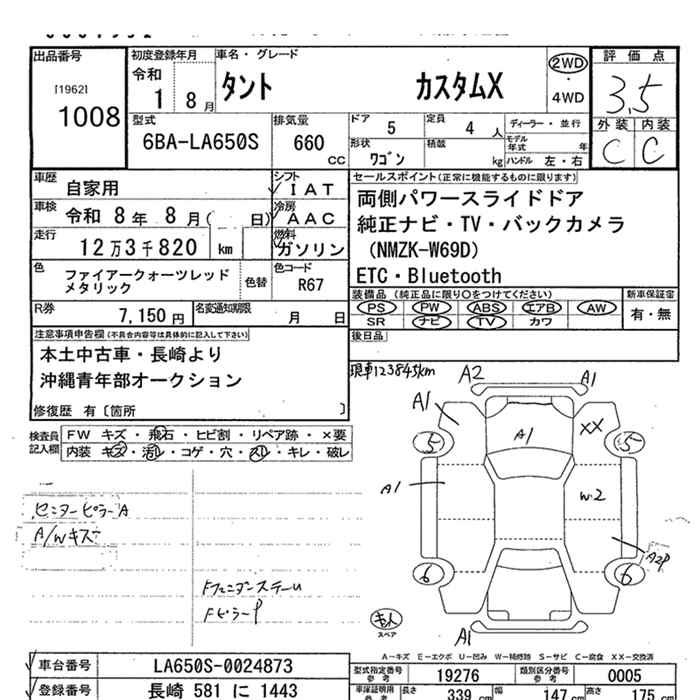 出品番号
[1962]
1008
初度登録年月
令和
1 8 月
車名・グレード
タント カスタムX
2WD
4WD
評価点
3.5
外装 内装
C C
型式
6BA-LA650S
排気量
660
CC
ドア 5
定員 4 人
ディーラー・並行
形状 ワゴン
積載 kg
モデル年式 年
ハンドル 左・右
車歴 自家用
シフト
IAT
車検 令和 8 年 8 月( 日)
冷房
AAC
走行 12万3千820 km
燃料
ガソリン
色 ファイアークォーツレッド
メタリック
色替
色コード
R67
R券 7,150 円
名変通知期限
月 日
セールスポイント(正常に機能するものに限ります)
両側パワースライドドア
純正ナビ・TV・バックカメラ
(NMZK-W69D)
ETC・Bluetooth
装備品 (純正品に限り○をつけてください)
PS PW ABS エアB AW
SR ナビ TV カワ
新車保証書
有・無
後日品
注意事項申告欄(不具合内容等は具体的に記入して下さい)
本土中古車・長崎より
沖縄青年部オークション
修復歴 有〔箇所 〕
検査員
記入欄
FW キズ・飛石・ヒビ割・リペア跡・×要
内装 キズ・汚レ・コゲ・穴・スレ・キレ・破レ
現車123845km
A2
A1
A1
A1
XX
5
5
A1
W2
A2P
6
6
A1
スペア
センターピラーA
A/Wキズ
Fピラー P
A-キズ E-エクボ U-凹み W-補修跡 S-サビ C-腐食 XX-交換済
車台番号 LA650S-0024873
型式指定番号
参考
19276
類別区分番号
参考
0005
登録番号 長崎 581 に 1443
車庫証明用
参考
長さ 339 cm
幅 147 cm
高さ 175 cm